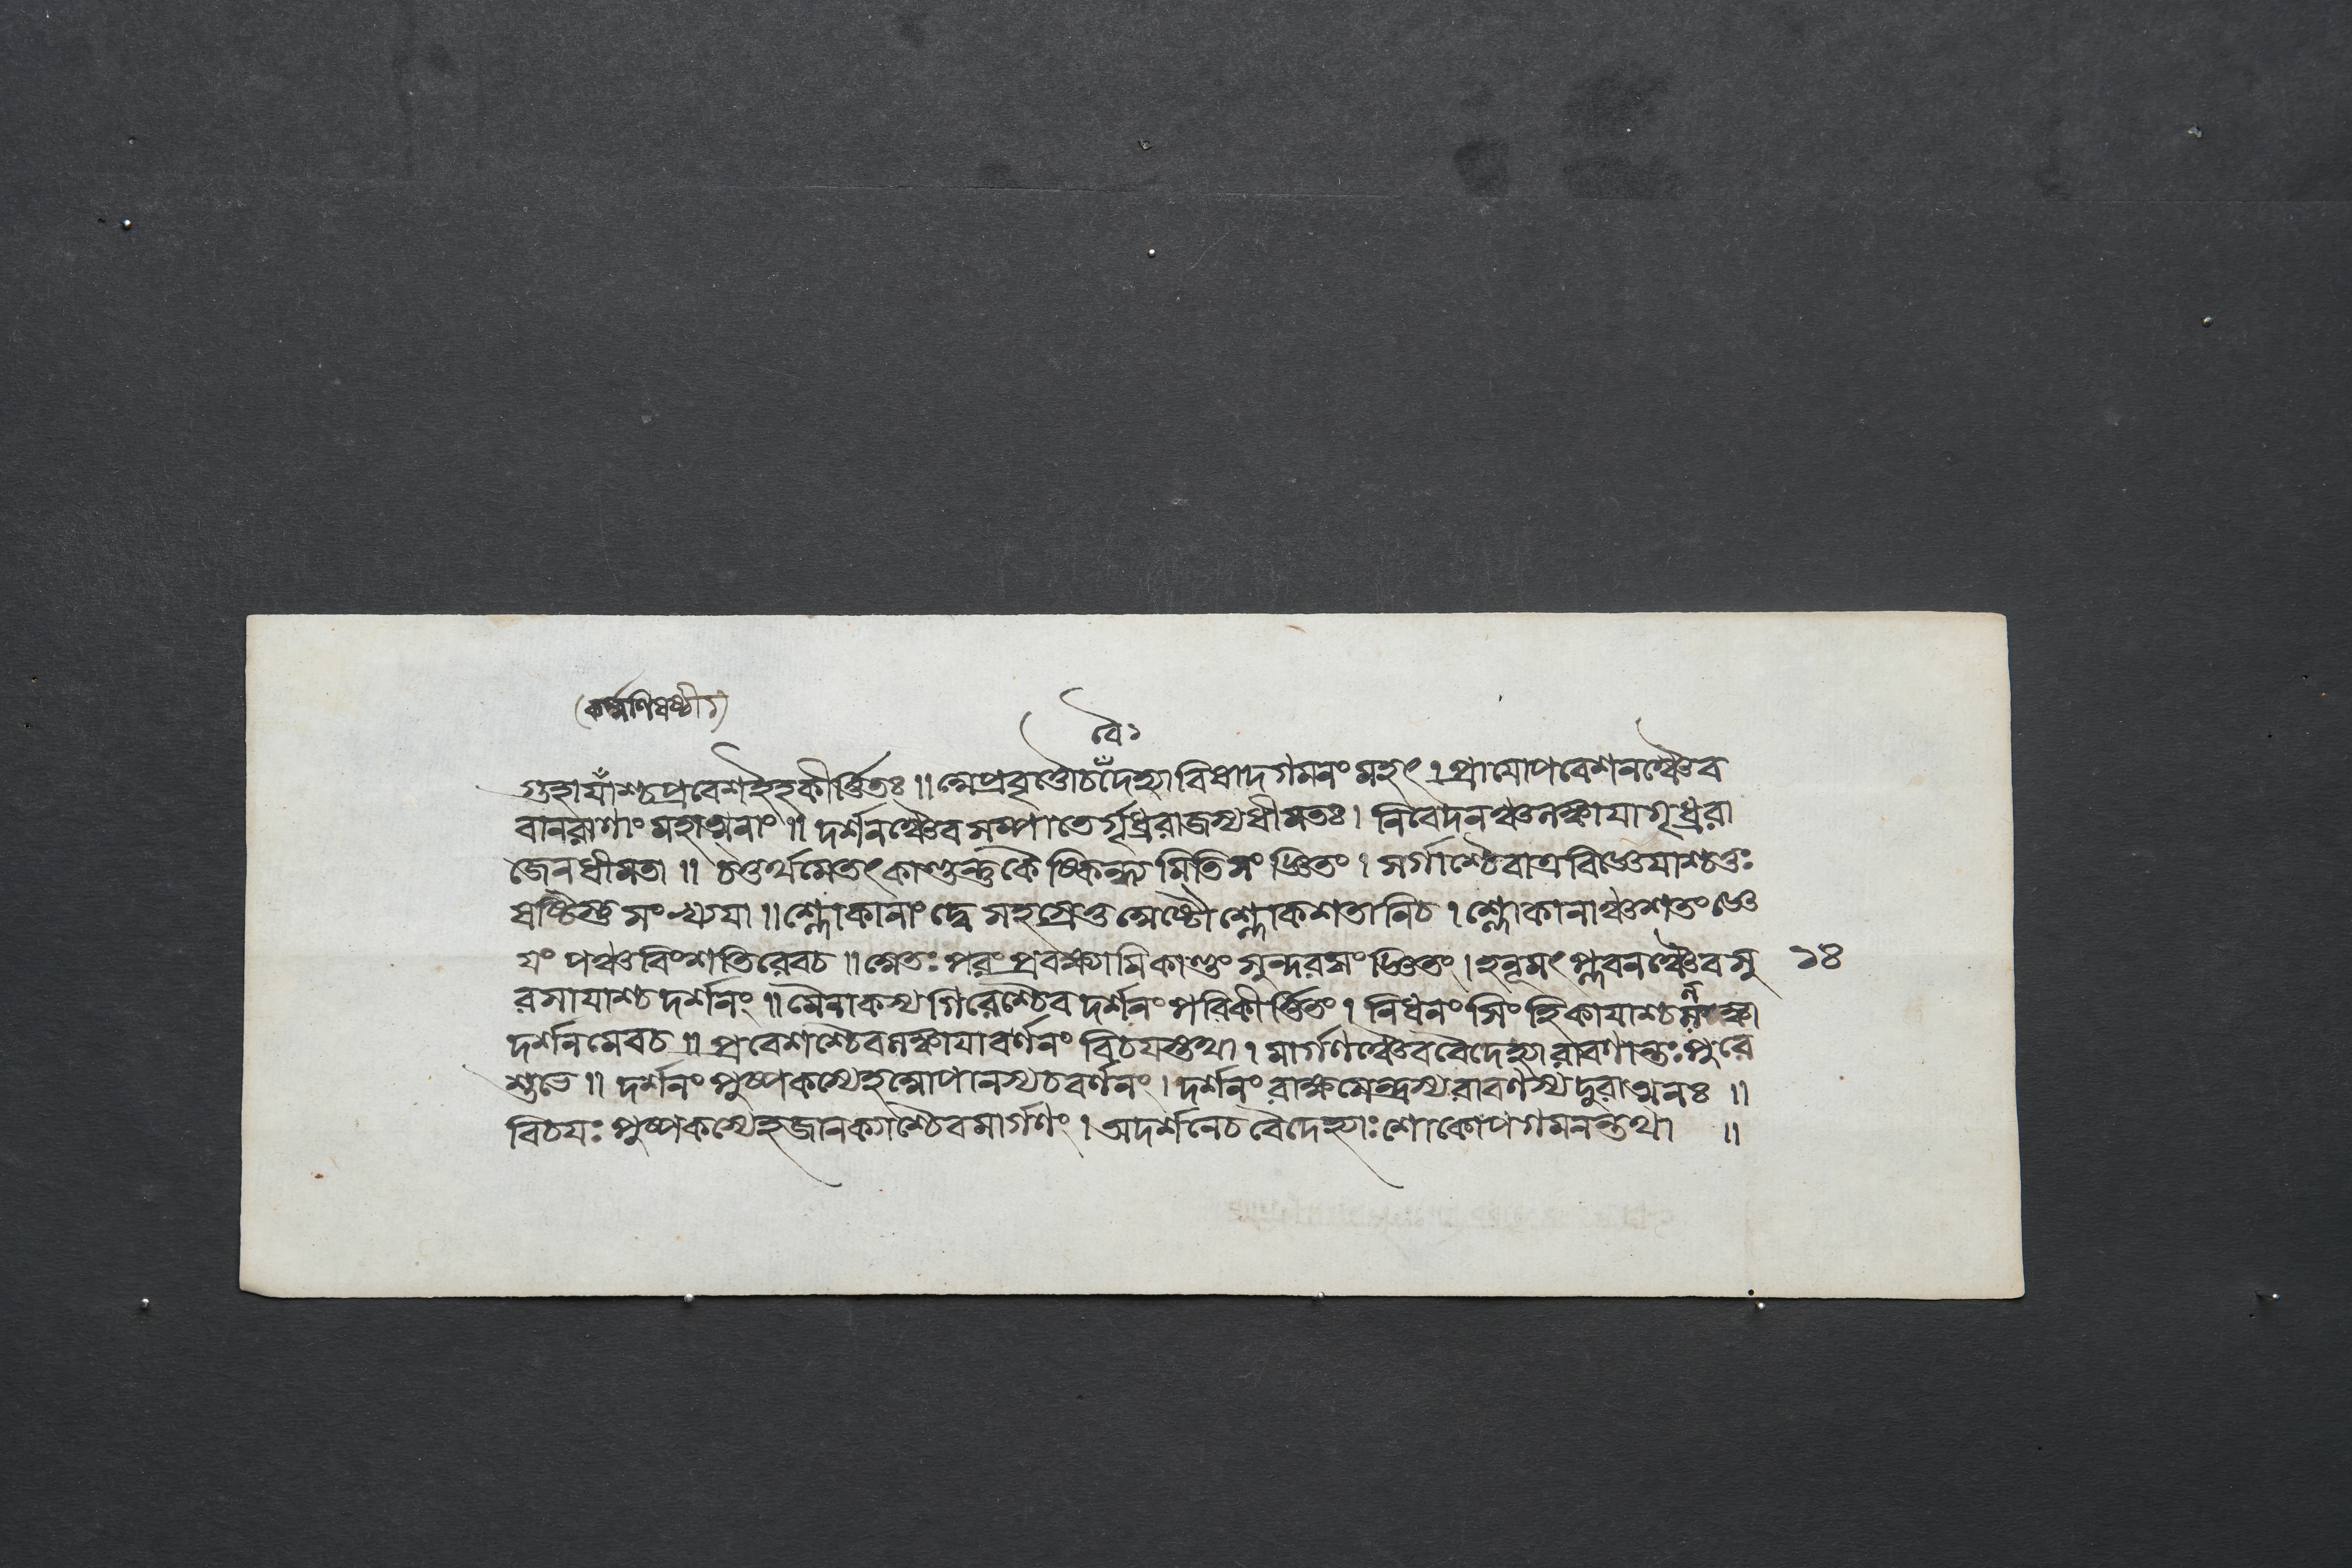 (কর্ম্মণিষষ্ঠী)
বৈ১
গুহাযাঁশ্চপ্রবেশইহকীর্ত্তিতঃ॥ অপ্রবৃত্তৌচ দেহ্যাবিষাদগমনং মহৎ। প্রাযোপবেশনঞ্চৈব
বানরাণাং মহাত্মনাং॥ দর্শনঞ্চৈব সম্পাতের্গৃধ্ররাজস্যধীমতঃ। নিবেদনঞ্চলঙ্কাযাগৃধ্ররা
জেনধীমতা॥ চতুর্থমেতৎকাণ্ডন্তুকৈষ্কিন্ধ্যমিতিসংজ্ঞিতং। সর্গাশ্চৈবাত্রবিজ্ঞেযাশ্চতুঃ
ষষ্টিস্তু সংখ্যযা॥ শ্লোকানাং দ্বে সহস্রেতুঅষ্টৌশ্লোকশতানিচ। শ্লোকানাঞ্চশতংজ্ঞে
যং পঞ্চবিংশতিরেবচ॥ অতঃপরংপ্রবক্ষ্যামিকাণ্ডং সুন্দরসংজ্ঞিতং। হনূমৎপ্লবনঞ্চৈবসু ১৪
রসাযাশ্চ দর্শনং॥ মৈনাকস্য গিরেশ্চৈব দর্শনং পরিকীর্ত্তিতং। নিধনং সিংহিকাযাশ্চলঙ্কা
দর্শনমেবচ॥ প্রবেশশ্চৈবলঙ্কাযাবর্ণনং বিচযস্তথা। মার্গণঞ্চৈববৈদেহ্যারাবণান্তঃপুরে
শুভে॥ দর্শনং পুষ্পকস্যেহআপানস্যচবর্ণনং। দর্শনং রাক্ষসেন্দ্রস্যরাবণস্যদুরাত্মনঃ॥
বিচযঃ পুষ্পকস্যেহজানক্যাশ্চৈবমার্গণং। অদর্শনেচ বৈদেহ্যাঃশোকোপগমনন্তথা॥